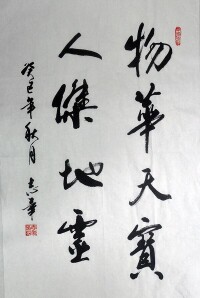 物華天寶
人傑地靈
癸巳年秋月 志華